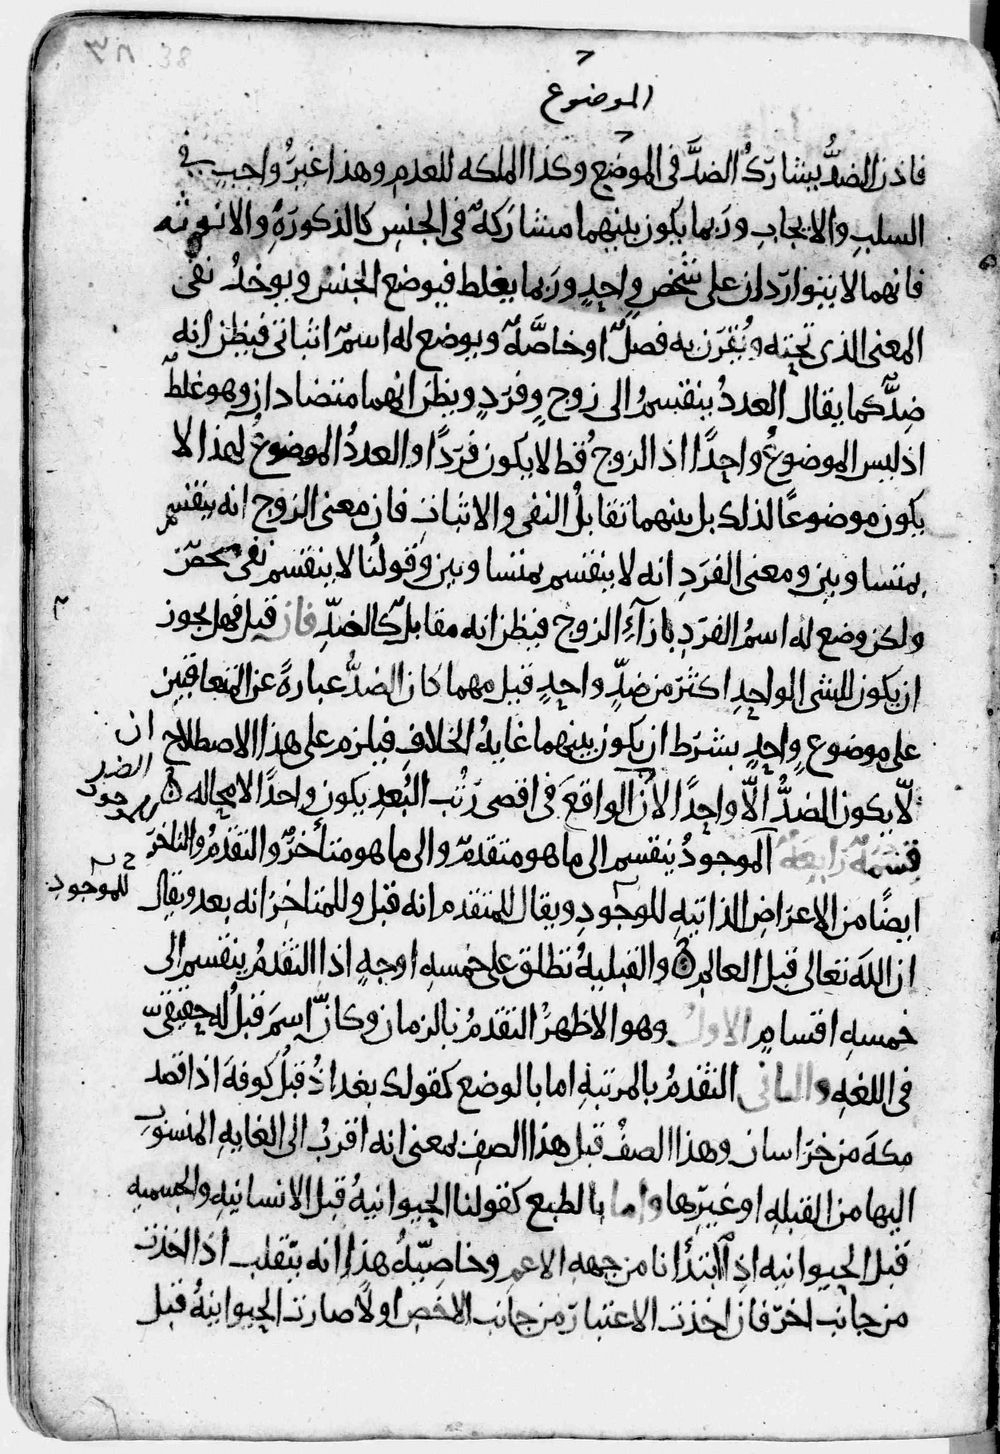 ٣٨ 38
الموضوع
فاذن الضدُّ يشارك الضدَّ فى الموضع وكذا الملكه للعدم وهذا غيرُ واجبٍ فى
السلبِ والايجابِ وربما يكون بينهما مشاركةٌ فى الجنسِ كالذكورَةِ والانوثه
فانهما لا يتواردان على شخصٍ واحدٍ وربما يغلط فيوضع الجنس ويوخدُ نفى
المعنى الذى تحته ويُقرَن به فصلٌ او خاصَّهٌ ويوضع له اسمٌ اثباتى فيظن انه
ضدٌّ كما يقال العددُ ينقسمُ الى زوجٍ وفردٍ ويظن انهما متضادان وهو غلطٌ
اذ ليس الموضوعُ واحدًا اذ الزوج قط لا يكون فردًا والعددُ الموضوعُ لهذا لا
يكون موضوعًا لذلك بل بينهما تقابلُ النفى والاثبات فان معنى الزوج انه ينقسم
بمتساويين ومعنى الفردِ انه لا ينقسم بمتساويين وقولُنا لا ينقسم نفىٌ محضٌ
ولكن وضع له اسمُ الفردِ بازآءِ الزوج فيظن انه مقابلٌ كالضدِّ فان قيل فهل يجوز
ان يكون للشى الواحدِ اكثر من ضدٍّ واحدٍ قيل مهما كان الضدُّ عبارةً عن المتعاقبين
على موضوعٍ واحدٍ بشرط ان يكون بينهما غايهُ الخلافِ فيلزم على هذا الاصطلاح ان
لا يكون الضدُّ الّا واحدًا لانّ الواقعَ فى اقصى رُتب البُعدِ يكون واحدًا لا محاله
قسمهٌ رابعهٌ الموجودُ ينقسم الى ما هو متقدمٌ والى ما هو متأخرٌ والتقدمُ والتاخر
للموجود
ايضًا من الاعراض الذاتيهِ للموجودِ ويقال للمتقدم انه قبل وللمتاخر انه بعد ويقال
ان اللهَ تعالى قبل العالم والقبليهُ تطلق على خمسه اوجهٍ اذا التقدمُ ينقسم الى
خمسهِ اقسامٍ الاول وهو الاظهرُ التقدمُ بالزمان وكانّ اسمَ قبلُ له حقيقىٌّ
فى اللغهِ والثانى التقدمُ بالمرتبهِ اما بالوضع كقولك بغداذُ قبل كوفهَ اذا قصد
مكهَ من خراسان وهذا الصفُ قبل هذا الصف بمعنى انه اقربُ الى الغايهِ المنسوب
اليها من القبلهِ او غيرِها واما بالطبع كقولنا الحيوانيهُ قبل الانسانيهِ والجسميه
قبل الحيوانيه اذا ابتدأنا من جهه الاعم وخاصيّهُ هذا انه ينقلب اذا اخذتَ
من جانبٍ اخر فان اخذت الاعتبار من جانب الاخص اولًا صارت الحيوانيهُ قبل